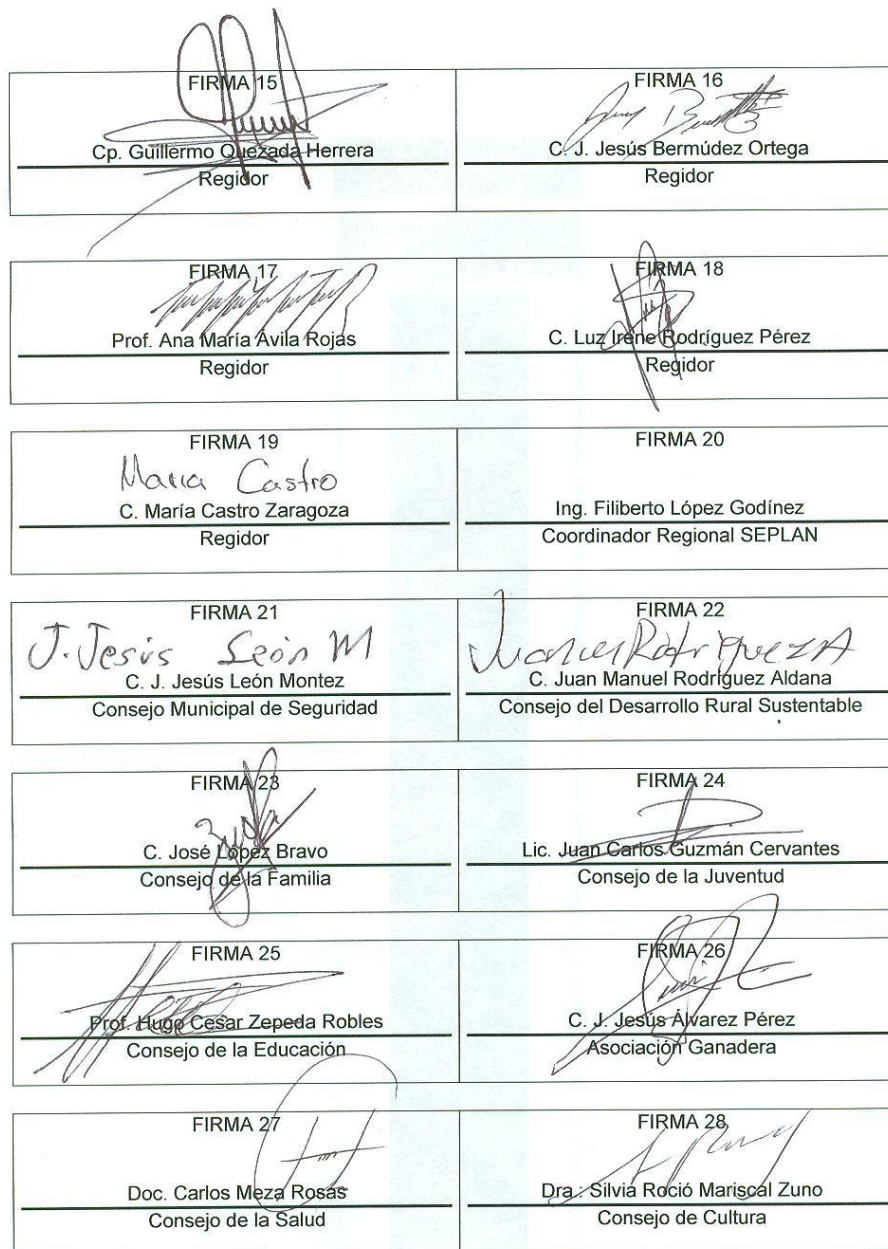 FIRMA 15
Cp. Guillermo Quezada Herrera
Regidor
FIRMA 16
C. J. Jesús Bermúdez Ortega
Regidor
FIRMA 17
Prof. Ana María Ávila Rojas
Regidor
FIRMA 18
C. Luz Irene Rodríguez Pérez
Regidor
FIRMA 19
Maria Castro
C. María Castro Zaragoza
Regidor
FIRMA 20
Ing. Filiberto López Godínez
Coordinador Regional SEPLAN
FIRMA 21
J. Jesús León M
C. J. Jesús León Montez
Consejo Municipal de Seguridad
FIRMA 22
C. Juan Manuel Rodríguez Aldana
Consejo del Desarrollo Rural Sustentable
FIRMA 23
C. José López Bravo
Consejo de la Familia
FIRMA 24
Lic. Juan Carlos Guzmán Cervantes
Consejo de la Juventud
FIRMA 25
Prof. Hugo Cesar Zepeda Robles
Consejo de la Educación
FIRMA 26
C. J. Jesús Álvarez Pérez
Asociación Ganadera
FIRMA 27
Doc. Carlos Meza Rosas
Consejo de la Salud
FIRMA 28
Dra : Silvia Roció Mariscal Zuno
Consejo de Cultura